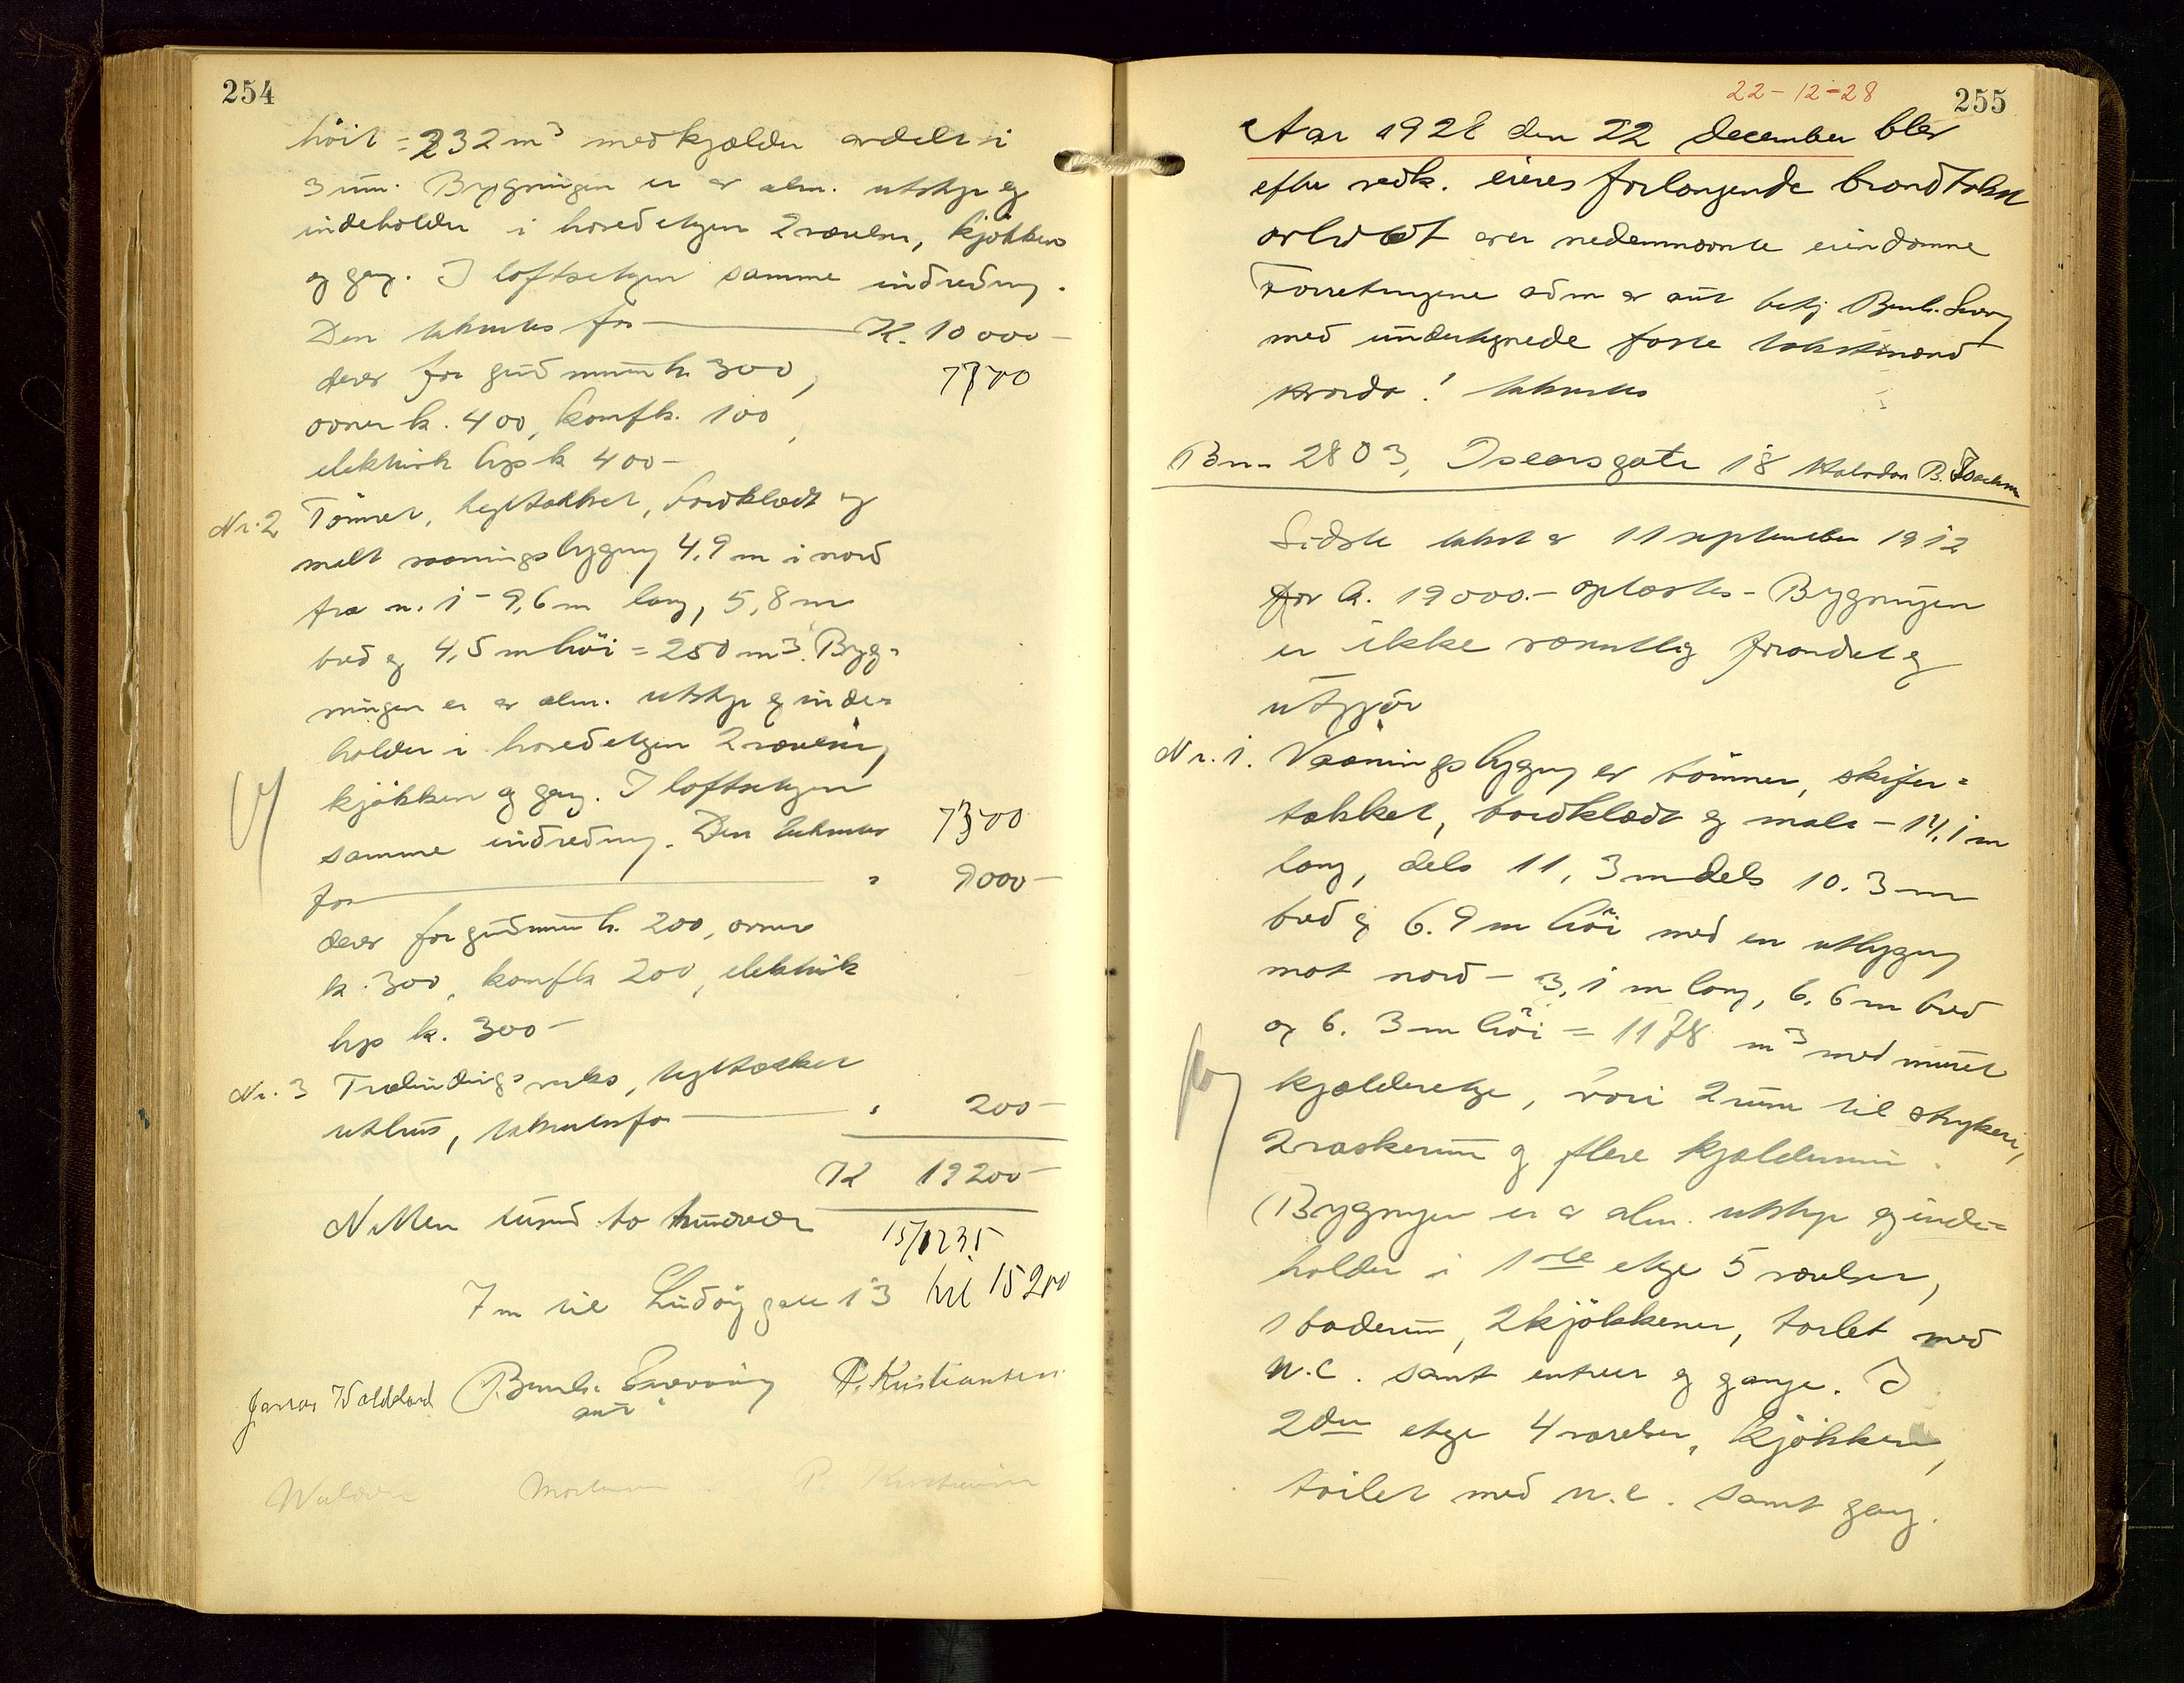 254
höit = 232 m³ med kjælder avdelt i
3 rum. Bygningen er av alm. utstyr og
indeholder i hovedetgen 2 værelser, kjökken
og gang. I loftsetgen samme indredning.
Den takseres for K. 10 000 -
derav for grundmur k. 300, 7700
ovner k. 400, komf k. 100,
elektrisk lys k 400 -
Nr. 2 Tömret, tegltækket, bordklædt og
malt vaaningsbygning 4,9 m i nord
fra n. 1 - 9,6 m lang, 5,8 m
bred og 4,5 m höi = 250 m³. Byg-
ningen er av alm. utstyr og inde-
holder i hovedetgen 2 værelser,
kjökken og gang. I loftsetgen
samme indredning. Den takseres 7500
for " 9000 -
derav for grundmur k. 200, ovner
k. 300, komf k 200, elektrisk
lys k. 300 -
Nr. 3 Træbindingsverks, tegltækket
uthus, takseres for " 200 -
K 19200 -
Nitten tusind to hundrede
15/12 35.
7 m til Lindöig gate 13 15200
Bernh. Severing P. Kristiansen
P. Kristiansen
22-12-28
255
Aar 1928 den 22 december blev
efter vedk. eieres forlangende brandtakst
avholdt over nedennævnte eiendomme
Forretningene adm av aut betj Bernh. Severing
med undertegnede faste takstmænd
takseres
Bn. 2803, 18
Sidste takst av 11 september 1912
for k. 19000.- oplæstes - Bygningen
er ikke væsentlig forandret og
utgjör
Nr. 1. Vaaningsbygning av tömmer, skifer-
tækket, bordklædt og malt - 14,1 m
lang, dels 11,3 m dels 10.3 m
bred og 6.9 m höi med en utbygning
mot nord - 3,1 m lang, 6,6 m bred
og 6.3 m höi = 1178 m³ med muret
kjælderetge, hvori 2 rum til strykeri,
2 vaskerum og flere kjælderrum.
Bygningen er av alm. utstyr og inde-
holder i 1ste etge 5 værelser,
1 baderum, 2 kjökkener, toilet med
w.c. samt entreer og gange. I
2den etge 4 værelser, kjökken,
toilet med w.c. samt gang.